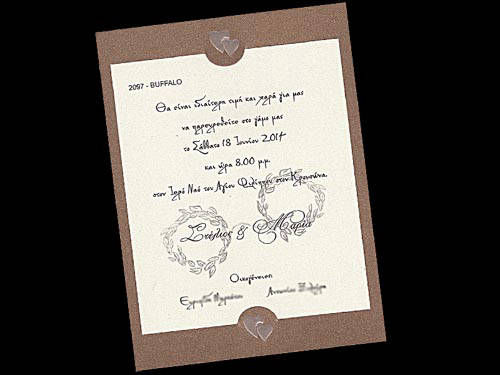 2097 - BUFFALO
Θα είναι ιδιαίτερη τιμή και χαρά για μας
να παρευρεθείτε στο γάμο μας
το Σάββατο 18 Ιουνίου 2014
και ώρα 8.00 μ.μ.
στον Ιερό Ναό του Αγίου Φιλίππου στον
Στέλιος & Μαρία
Οικογένεια